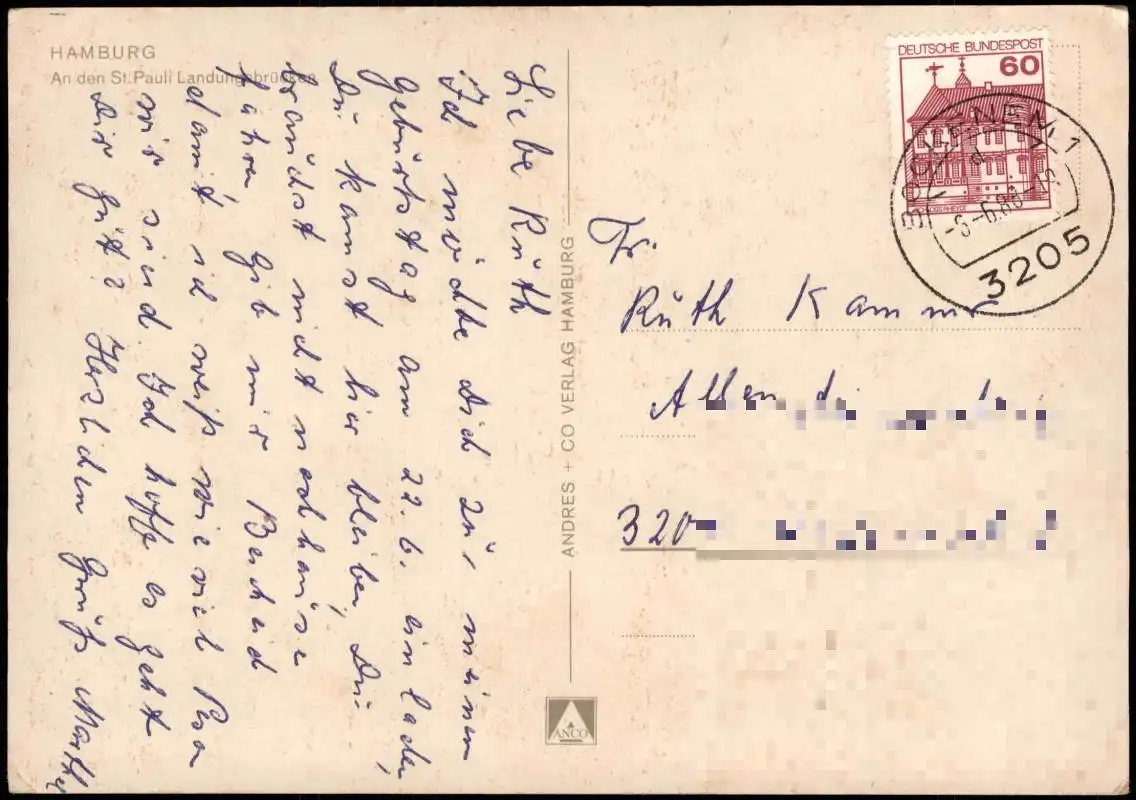 HAMBURG
An den St. Pauli Landungsbrücken
Liebe Ruth
Ich möchte Dich zur meinem
Geburtstag am 22.6. einladen,
Du kanst hier bleiben, Du
brauchst nicht nachhause
fahren, Gib mir Bescheid
damit ich weiß wieviel Per
wir sind. Ich hoffe es geht
Dir gut? Herzlichen Gruß
ANDRES + CO VERLAG HAMBURG
ANCO
DEUTSCHE BUNDESPOST
60
BOCKENEM 1
3205
Fr.
Ruth Kammer
320